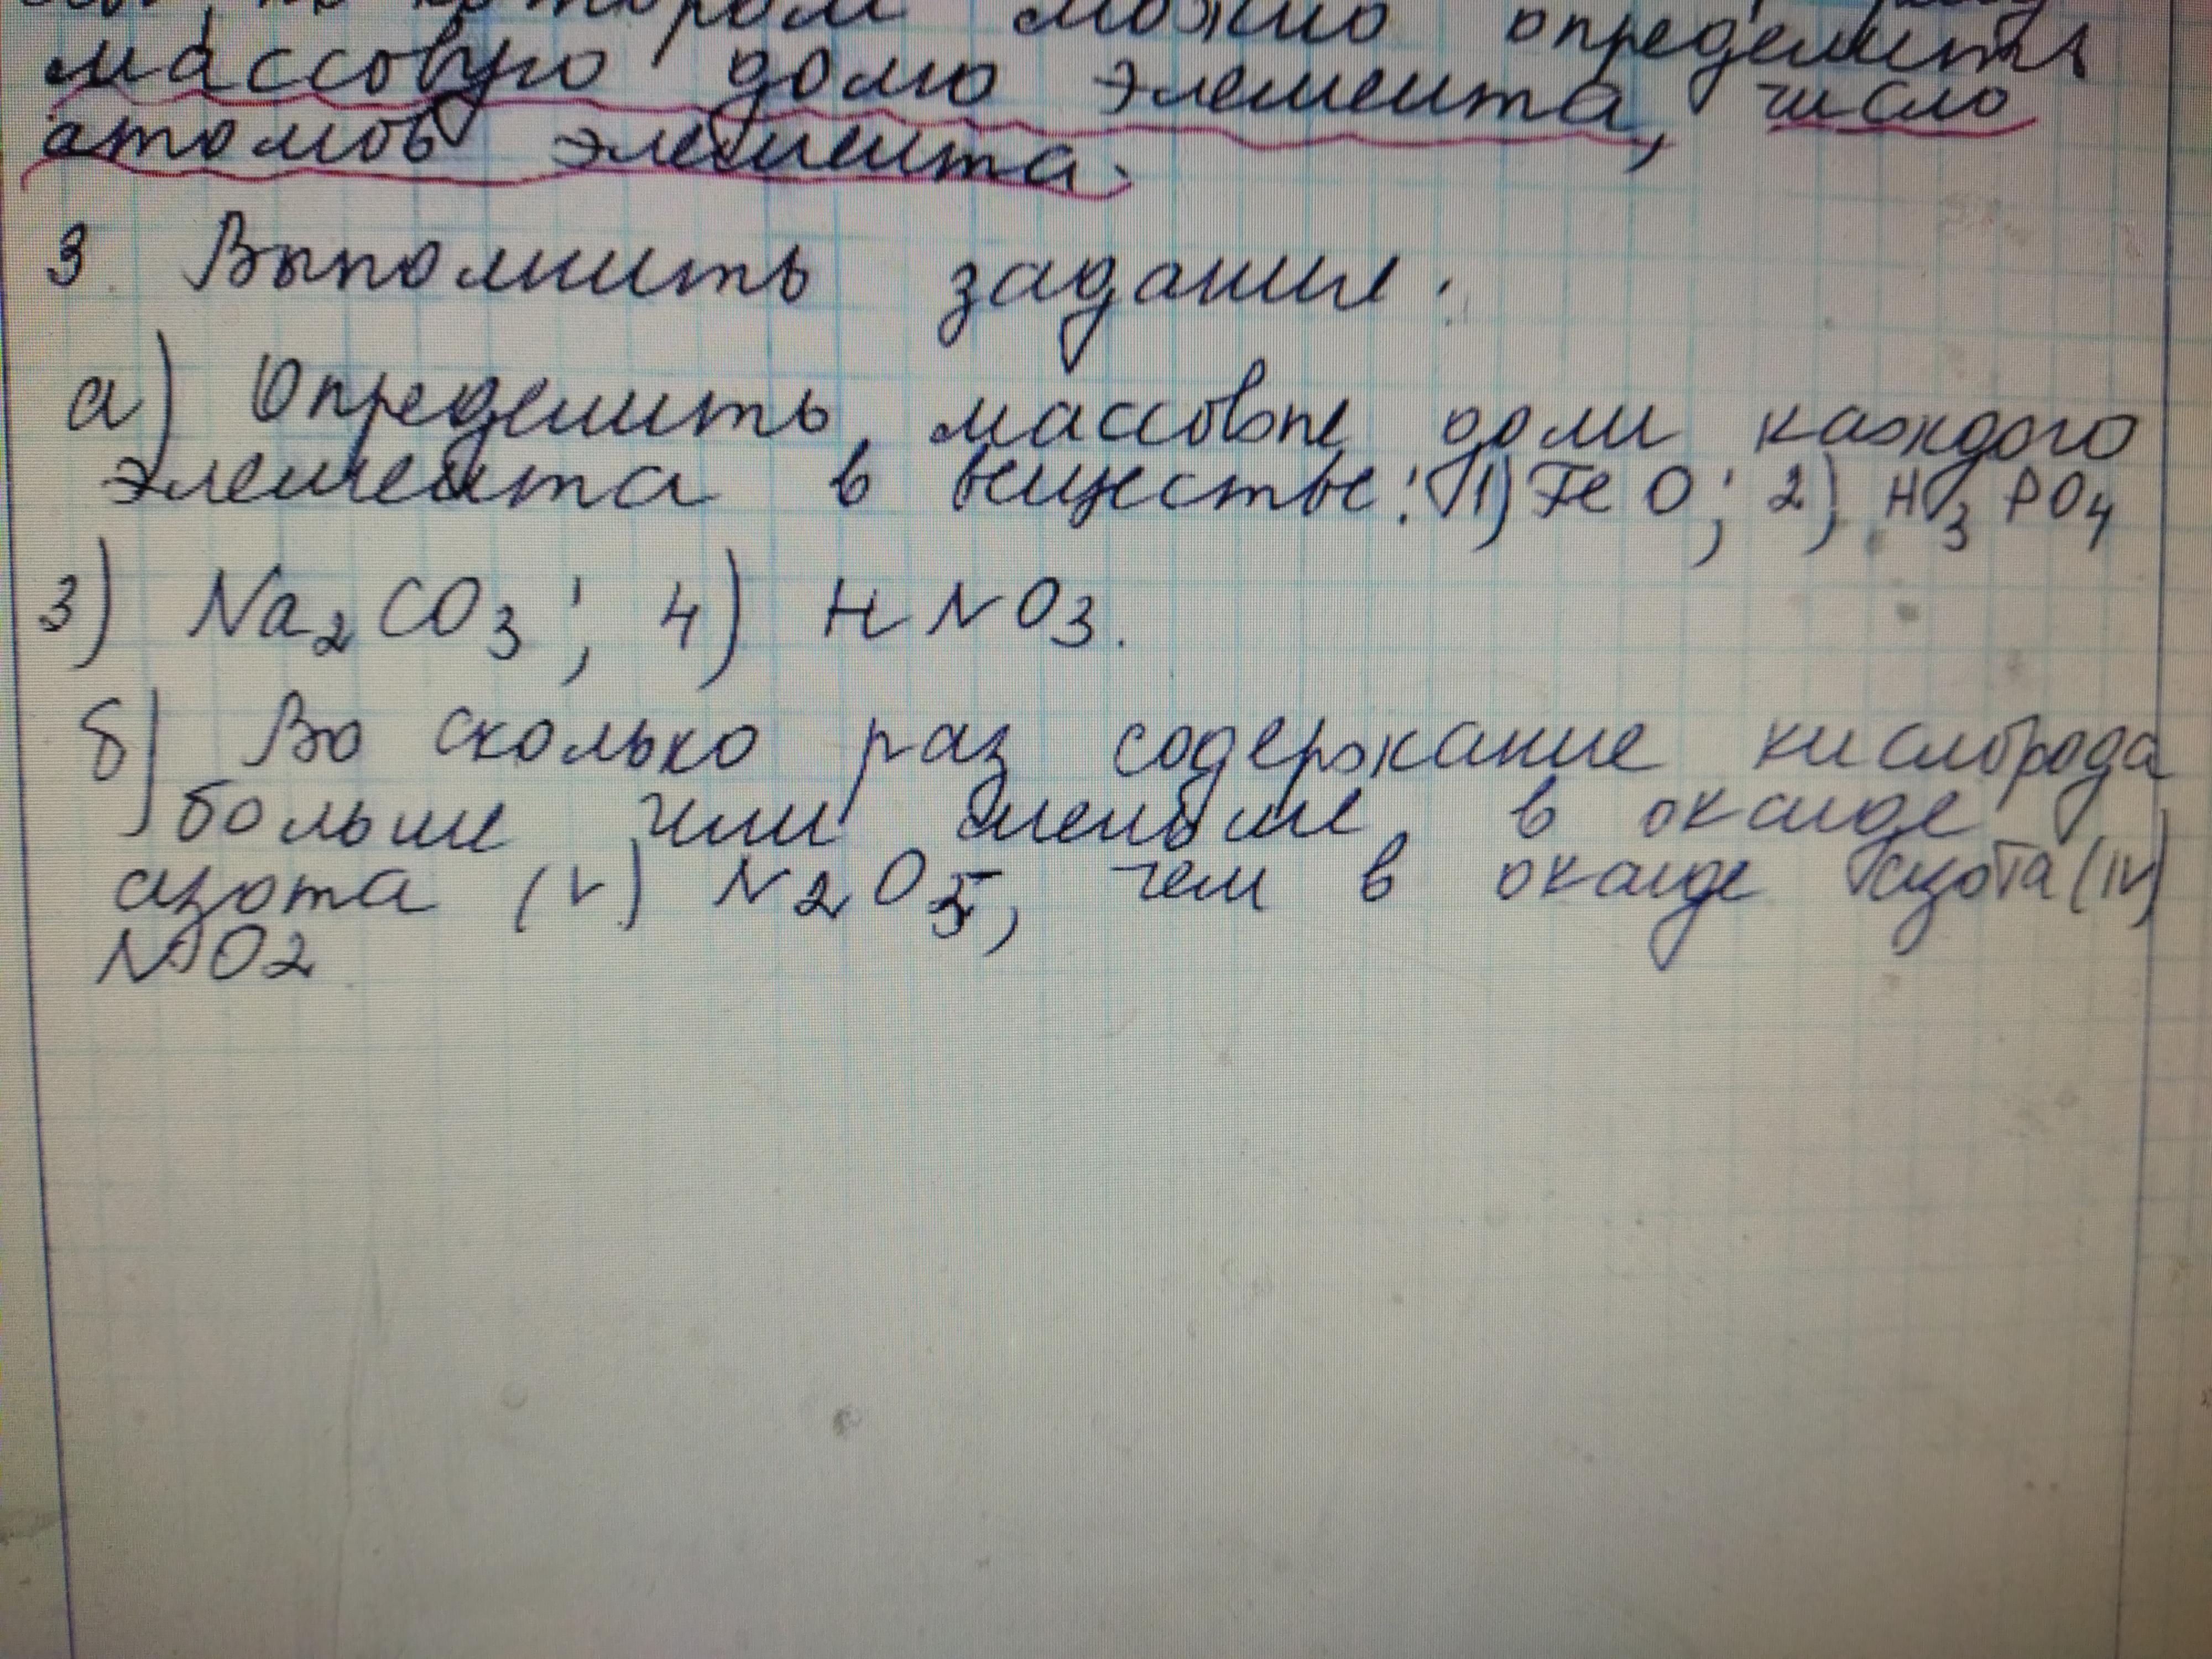 котором можно определить
массовую долю элемента, число
атомов элемента.
3. Выполнить задание.
а) Определить массовые доли каждого
элемента в веществе: 1) FeO; 2) H3PO4
3) Na2CO3; 4) HNO3.
б) Во сколько раз содержание кислорода
больше или меньше в оксиде
азота (V) N2O5, чем в оксиде азота (IV)
NO2